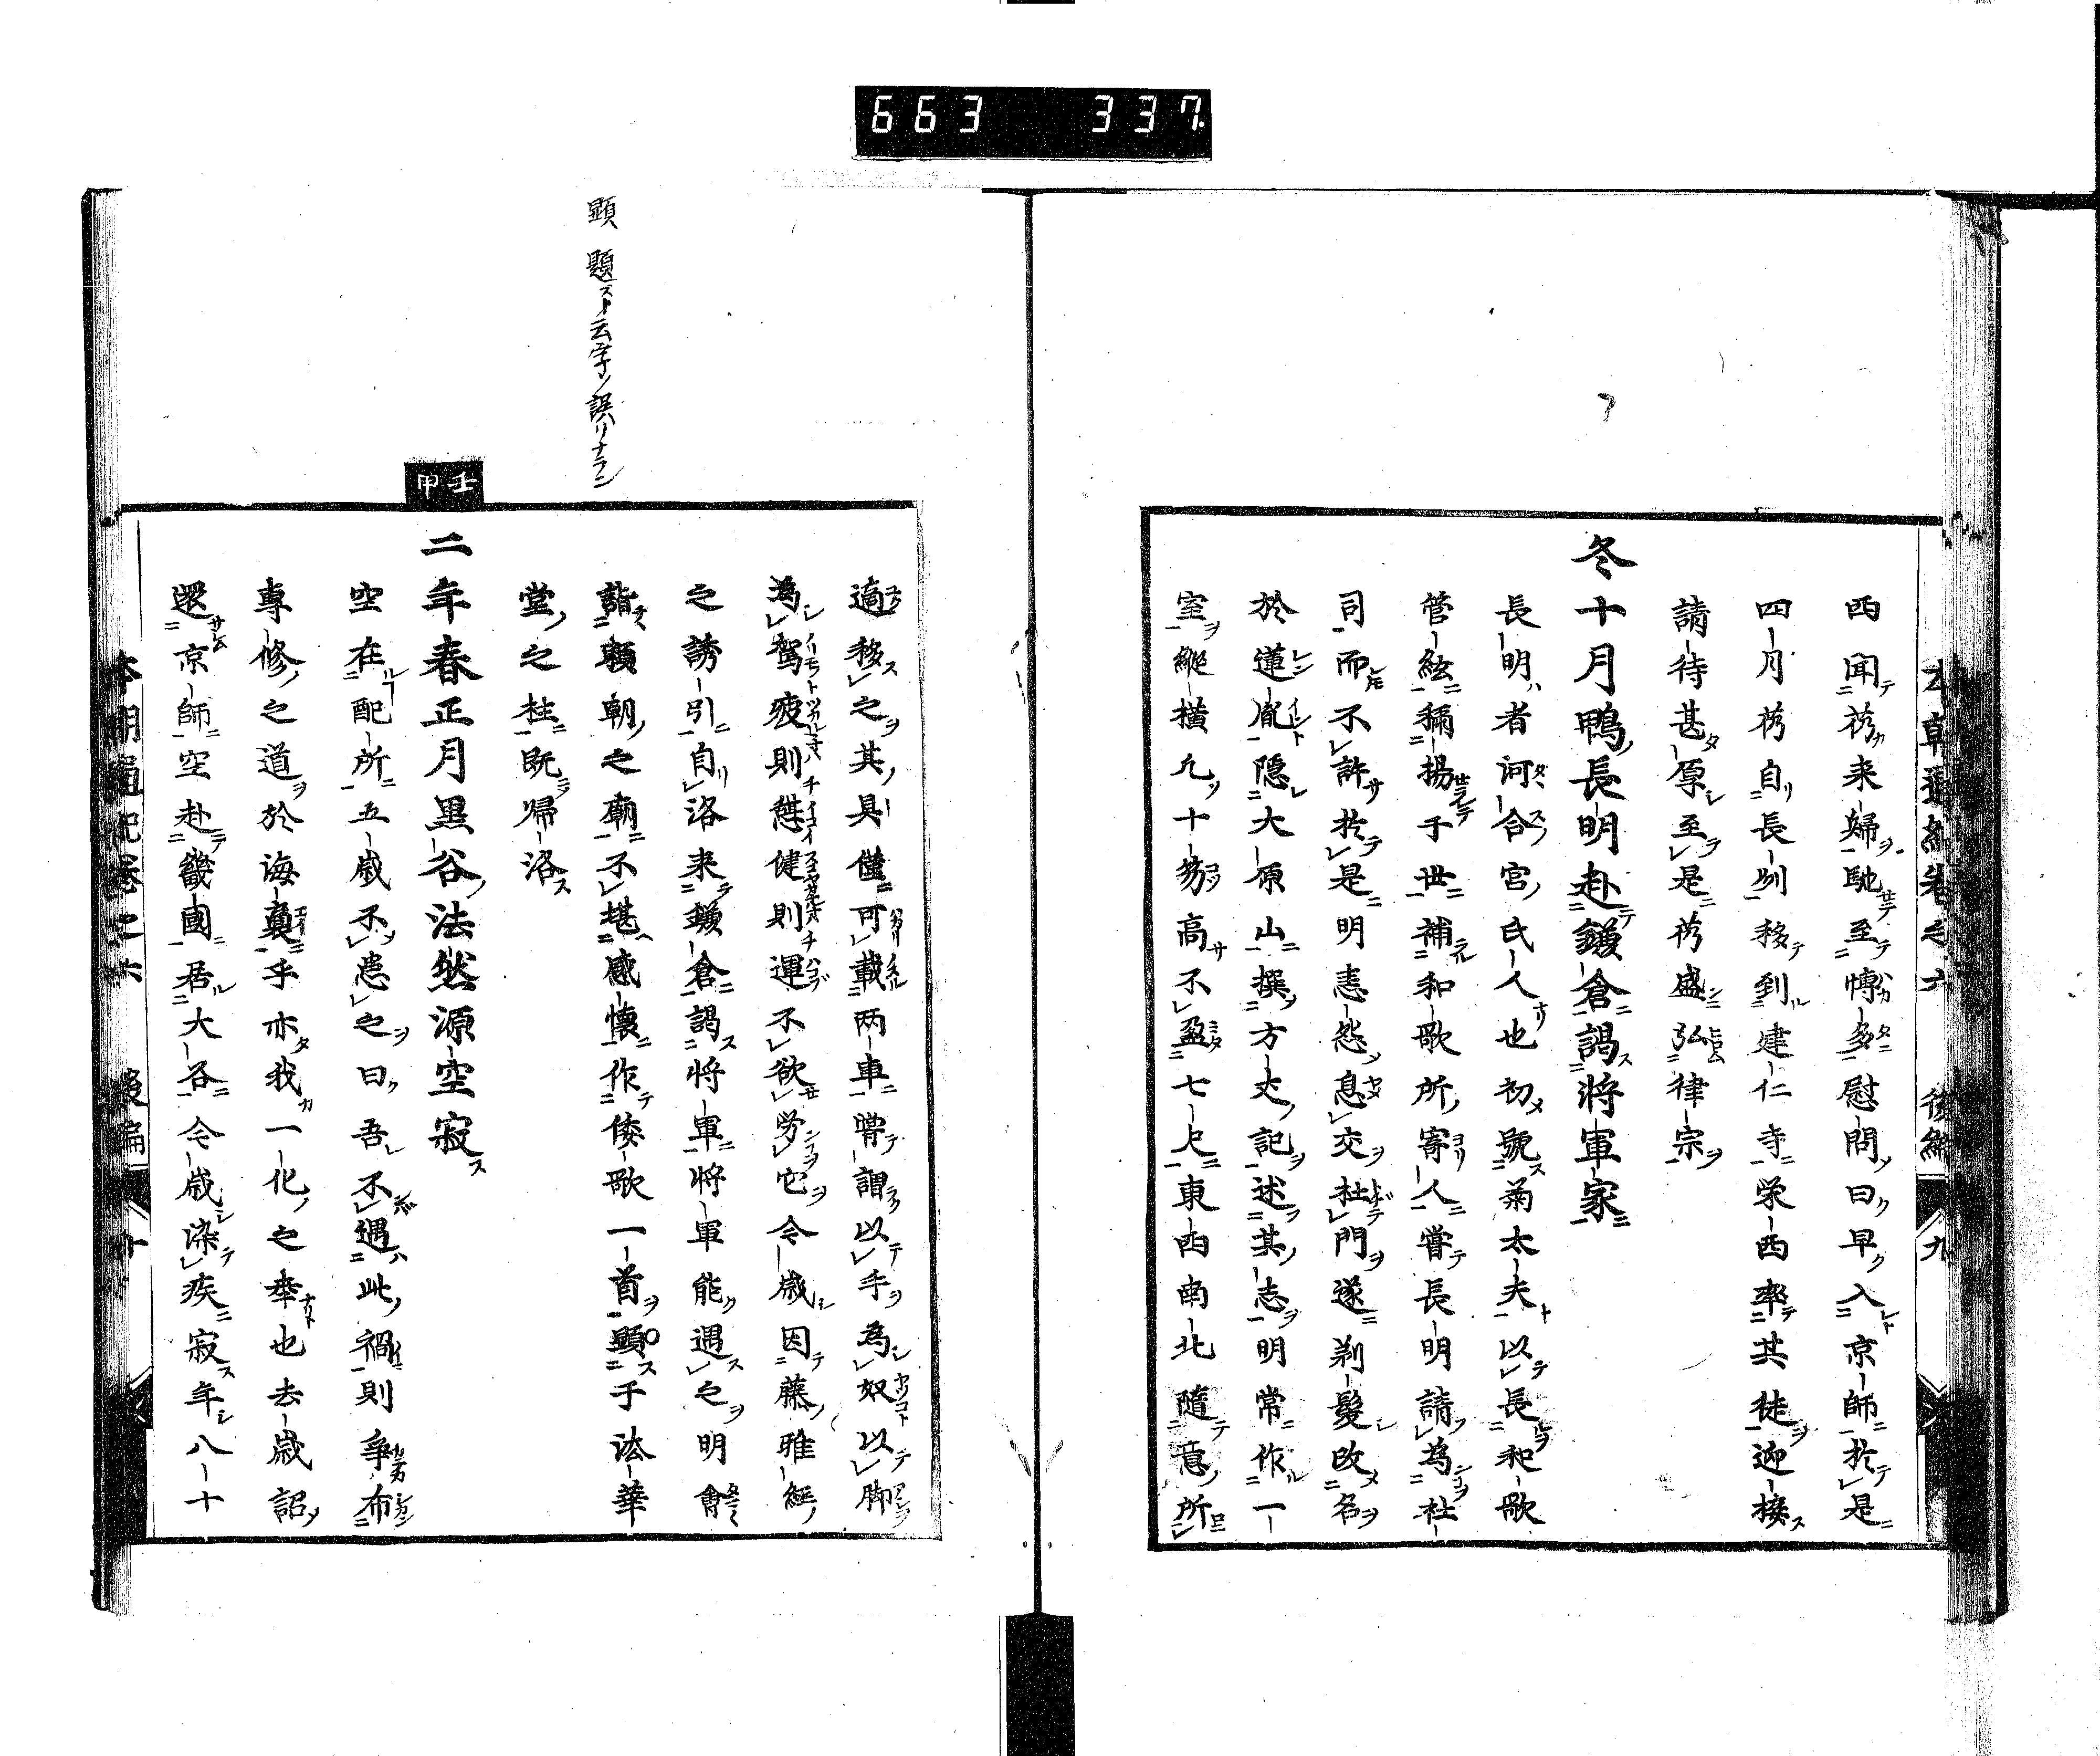 663 337
本朝通紀卷之六 後編 九
西聞芿来歸馳至博多慰問曰早入京師於是
四月芿自長州移到建仁寺栄西率其徒迎接
請待甚厚至是芿盛弘律宗
冬十月鴨長明赴鎌倉謁将軍家
長明者河合宮氏人也初號菊太夫以長和歌
管絃稱揚于世補和歌所寄人嘗長明請為社
司而不許於是明恚怨息交杜門遂剃髮改名
於蓮胤隠大原山撰方丈記述其志明常作一
室縱横凢十笏高不盈七尺東西南北隨意所
適移之其具僅可載两車嘗謂以手為奴以脚
為駕疲則憇健則運不欲労它今歳因藤雅経
之誘引自洛来鎌倉謁将軍将軍能遇之明會
詣頼朝之廟不堪感懐作倭歌一首顕于法華
堂之柱既歸洛
顕 題スト云字ノ誤リナラン
壬申
二年春正月黒谷法然源空寂
空在配所五歳不恚之曰吾不遇此禍則争布
專修之道於海裔乎亦我一化之幸也去歳詔
還京師空赴畿國居大谷今歳染疾寂年八十
本朝通紀卷之六 後編 十